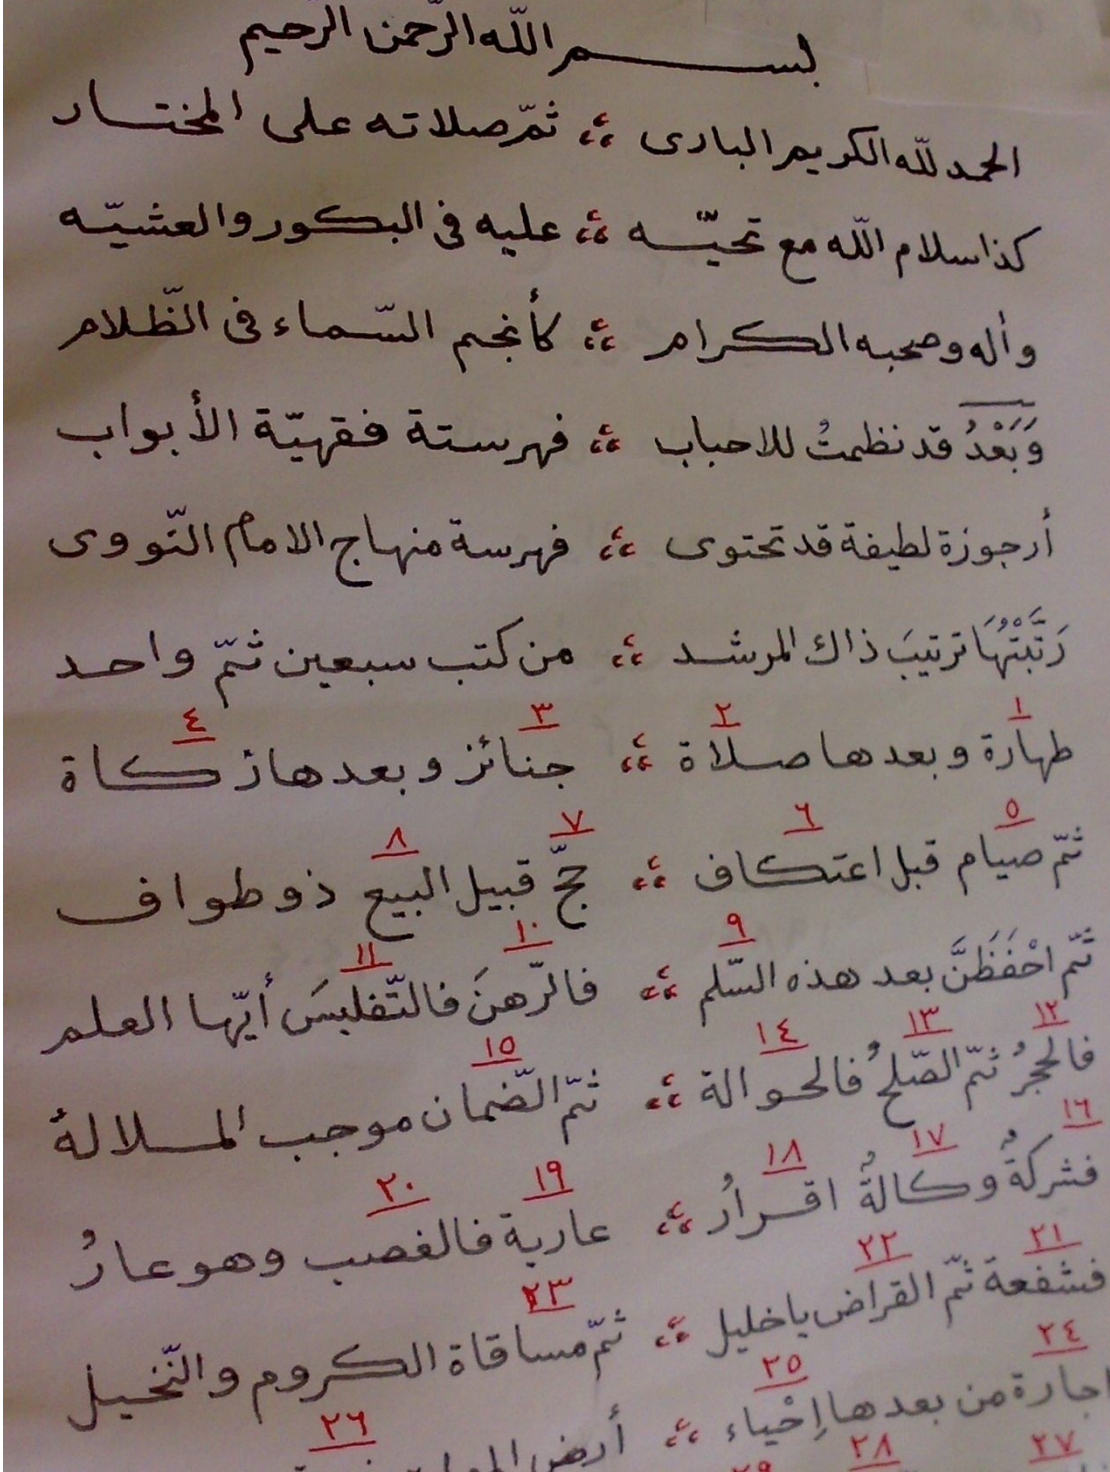 بسم الله الرّحمن الرّحيم
الحمد لله الكريم البارى ؞ ثمّ صلاته على المختار
كذا سلام اللّه مع تحيّه ؞ عليه فى البكور والعشيّه
وأله وصحبه الكرام ؞ كأنجم السّماء فى الظّلام
وَبَعْدُ قد نظمتُ للاحباب ؞ فهرستة فقهيّة الأبواب
أرجوزة لطيفة قد تحتوى ؞ فهرسة منهاج الامام النّووى
رَتَّبْتُهَا ترتيبَ ذاك المرشد ؞ من كتب سبعين ثمّ واحد
١ ٢ ٣ ٤
طهارة وبعدها صلاة ؞ جنائز وبعدها زكاة
٥ ٦ ٧ ٨
ثمّ صيام قبل اعتكاف ؞ حجّ قبيل البيع ذو طواف
٩ ١٠ ١١
ثمّ احْفَظَنَّ بعد هذه السّلم ؞ فالرّهنَ فالتّفليسَ أيّها العلم
١٢ ١٣ ١٤ ١٥
فالحجرُ ثمّ الصّلحُ فالحوالة ؞ ثمّ الضّمان موجب الملالة
١٦ ١٧ ١٨ ١٩ ٢٠
فشركةُ وكالةُ اقرارُ ؞ عارية فالغصب وهو عارُ
٢١ ٢٢ ٢٣
فشفعة ثمّ القراض ياخليل ؞ ثمّ مساقاة الكروم والنّخيل
٢٤ ٢٥ ٢٦
اجارة من بعدها إحْياء ؞ أرض
٢٧ ٢٨ ٢٩